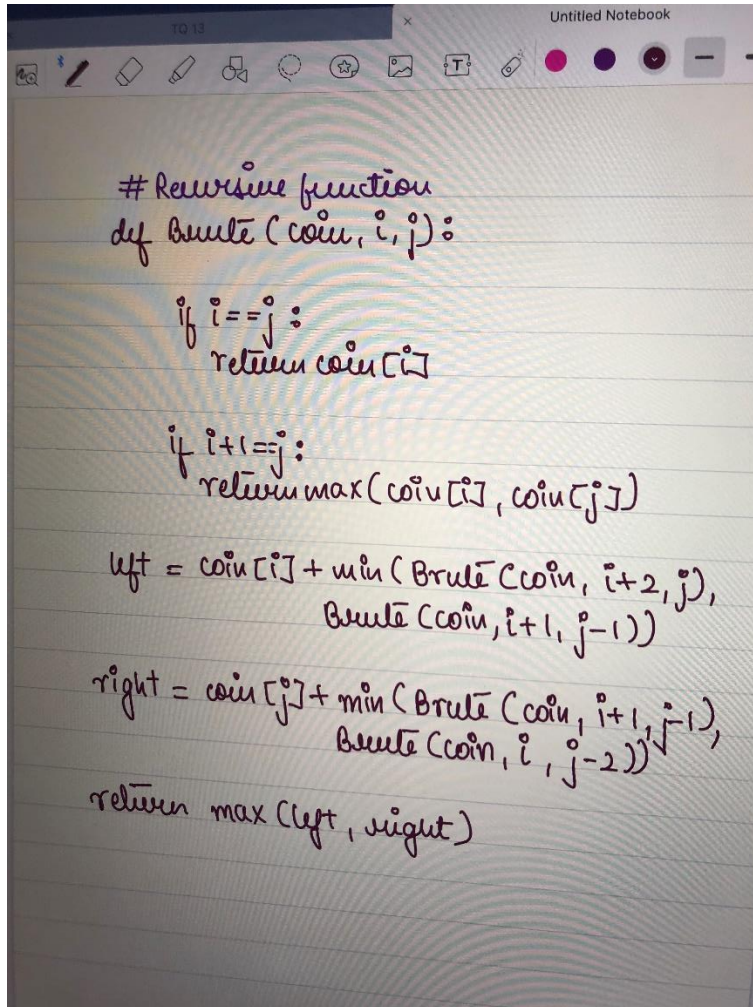 TQ 13
×
Untitled Notebook
T
# Recursive function
def Brute (coin, i, j):
if i==j:
return coin[i]
if i+1==j:
return max(coin[i], coin[j])
left = coin[i] + min(Brute(coin, i+2, j),
Brute(coin, i+1, j-1))
right = coin[j] + min(Brute(coin, i+1, j-1),
Brute(coin, i, j-2))
return max(left, right)